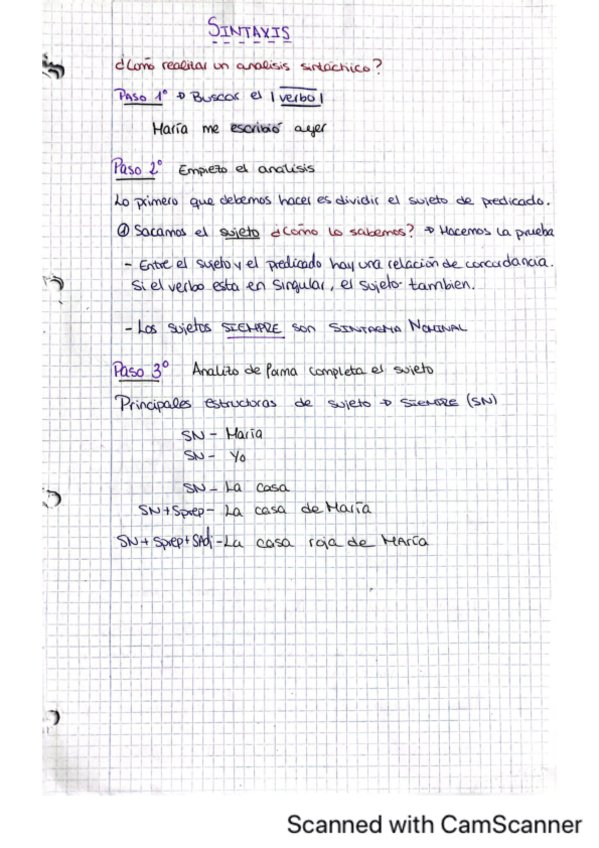 SINTAXIS
¿Como realizar un analisis sintáctico?
PASO 1º → Buscar el |verbo|
María me escribió ayer
Paso 2º Empiezo el analisis
Lo primero que debemos hacer es dividir el sujeto de predicado.
① Sacamos el sujeto ¿Cómo lo sabemos? → Hacemos la prueba
- Entre el sujeto y el predicado hay una relación de concordancia.
Si el verbo esta en singular, el sujeto tambien.
- Los sujetos SIEMPRE son SINTAGMA NOMINAL
Paso 3º Analizo de forma completa el sujeto
Principales estructuras de sujeto → SIEMPRE (SN)
SN - María
SN - Yo
SN - La casa
SN+Sprep- La casa de María
SN+Sprep+SAdj-La casa roja de María
Scanned with CamScanner